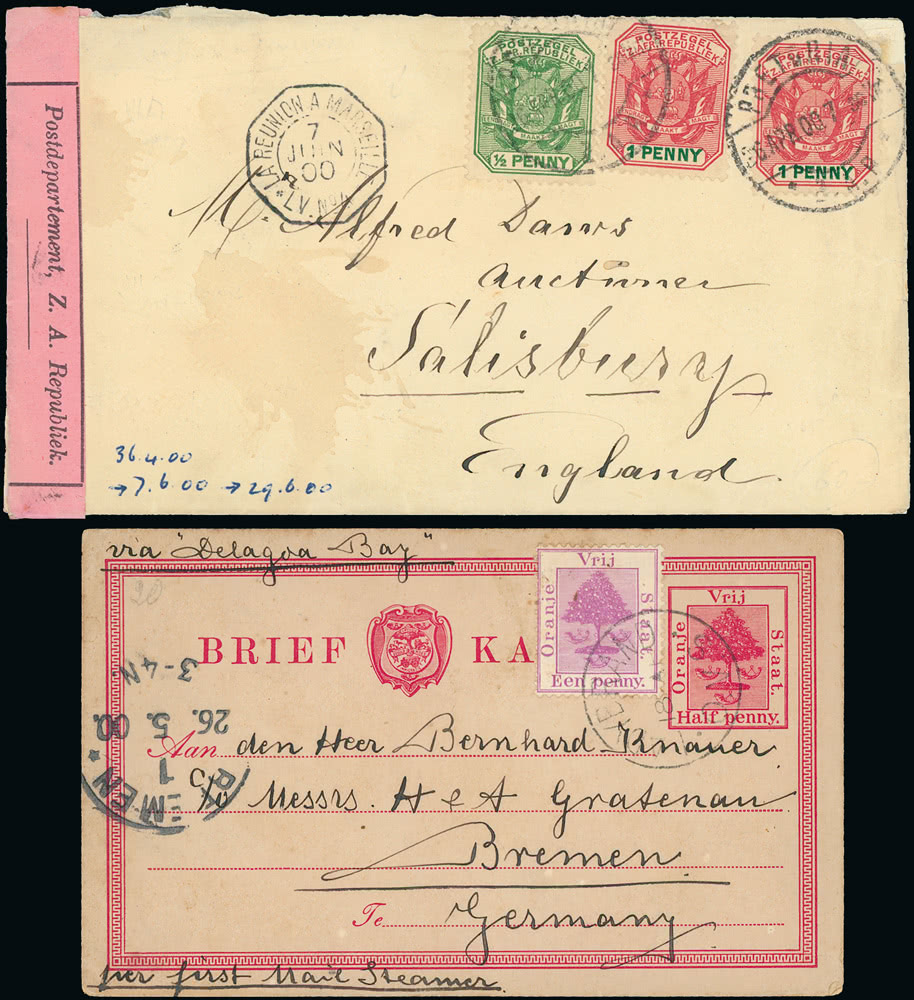 Postdepartement, Z. A. Republiek.
POSTZEGEL
Z. AFR. REPUBLIEK
EENDRAGT MAAKT MAGT
½ PENNY
POSTZEGEL
Z. AFR. REPUBLIEK
MAAKT MAGT
1 PENNY
POSTZEGEL
Z. AFR. REPUBLIEK
MAAKT
1 PENNY
PRETORIA
LA REUNION A MARSEILLE
7
JUIN
00
L.V. No 4
M. Alfred Daws
Auctioner
Salisbury
England.
36.4.00
→7.6.00 →29.6.00
via "Delagoa Bay"
20
BRIEF KA
Vrij
Oranje
Staat.
Een penny.
Vrij
Oranje
Staat
Half penny.
BREMEN
1
26. 5. 00.
3-4N
Aan den Heer Bernhard Knauer
c/o Messrs. H & A Gratenau
Bremen
Te Germany
per first Mail Steamer.